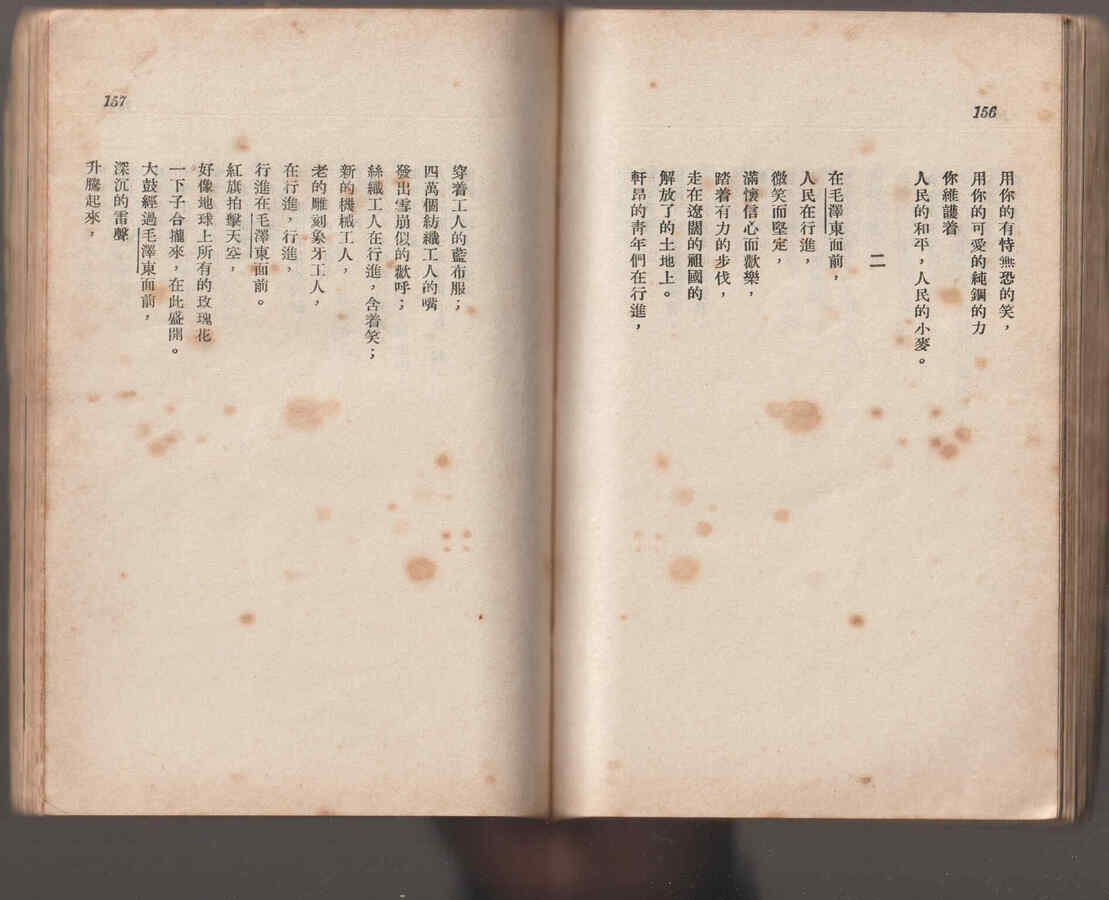 156
用你的有恃無恐的笑，
用你的可愛的純鋼的力
你維護着
人民的和平，人民的小麥。
二
在毛澤東面前，
人民在行進，
微笑而堅定，
滿懷信心而歡樂，
踏着有力的步伐，
走在遼闊的祖國的
解放了的土地上。
軒昂的靑年們在行進，
157
穿着工人的藍布服；
四萬個紡織工人的嘴
發出雪崩似的歡呼；
絲織工人在行進，含着笑；
新的機械工人，
老的雕刻象牙工人，
在行進，行進，
行進在毛澤東面前。
紅旗拍擊天空，
好像地球上所有的玫瑰花
一下子合攏來，在此盛開。
大鼓經過毛澤東面前，
深沉的雷聲
升騰起來，